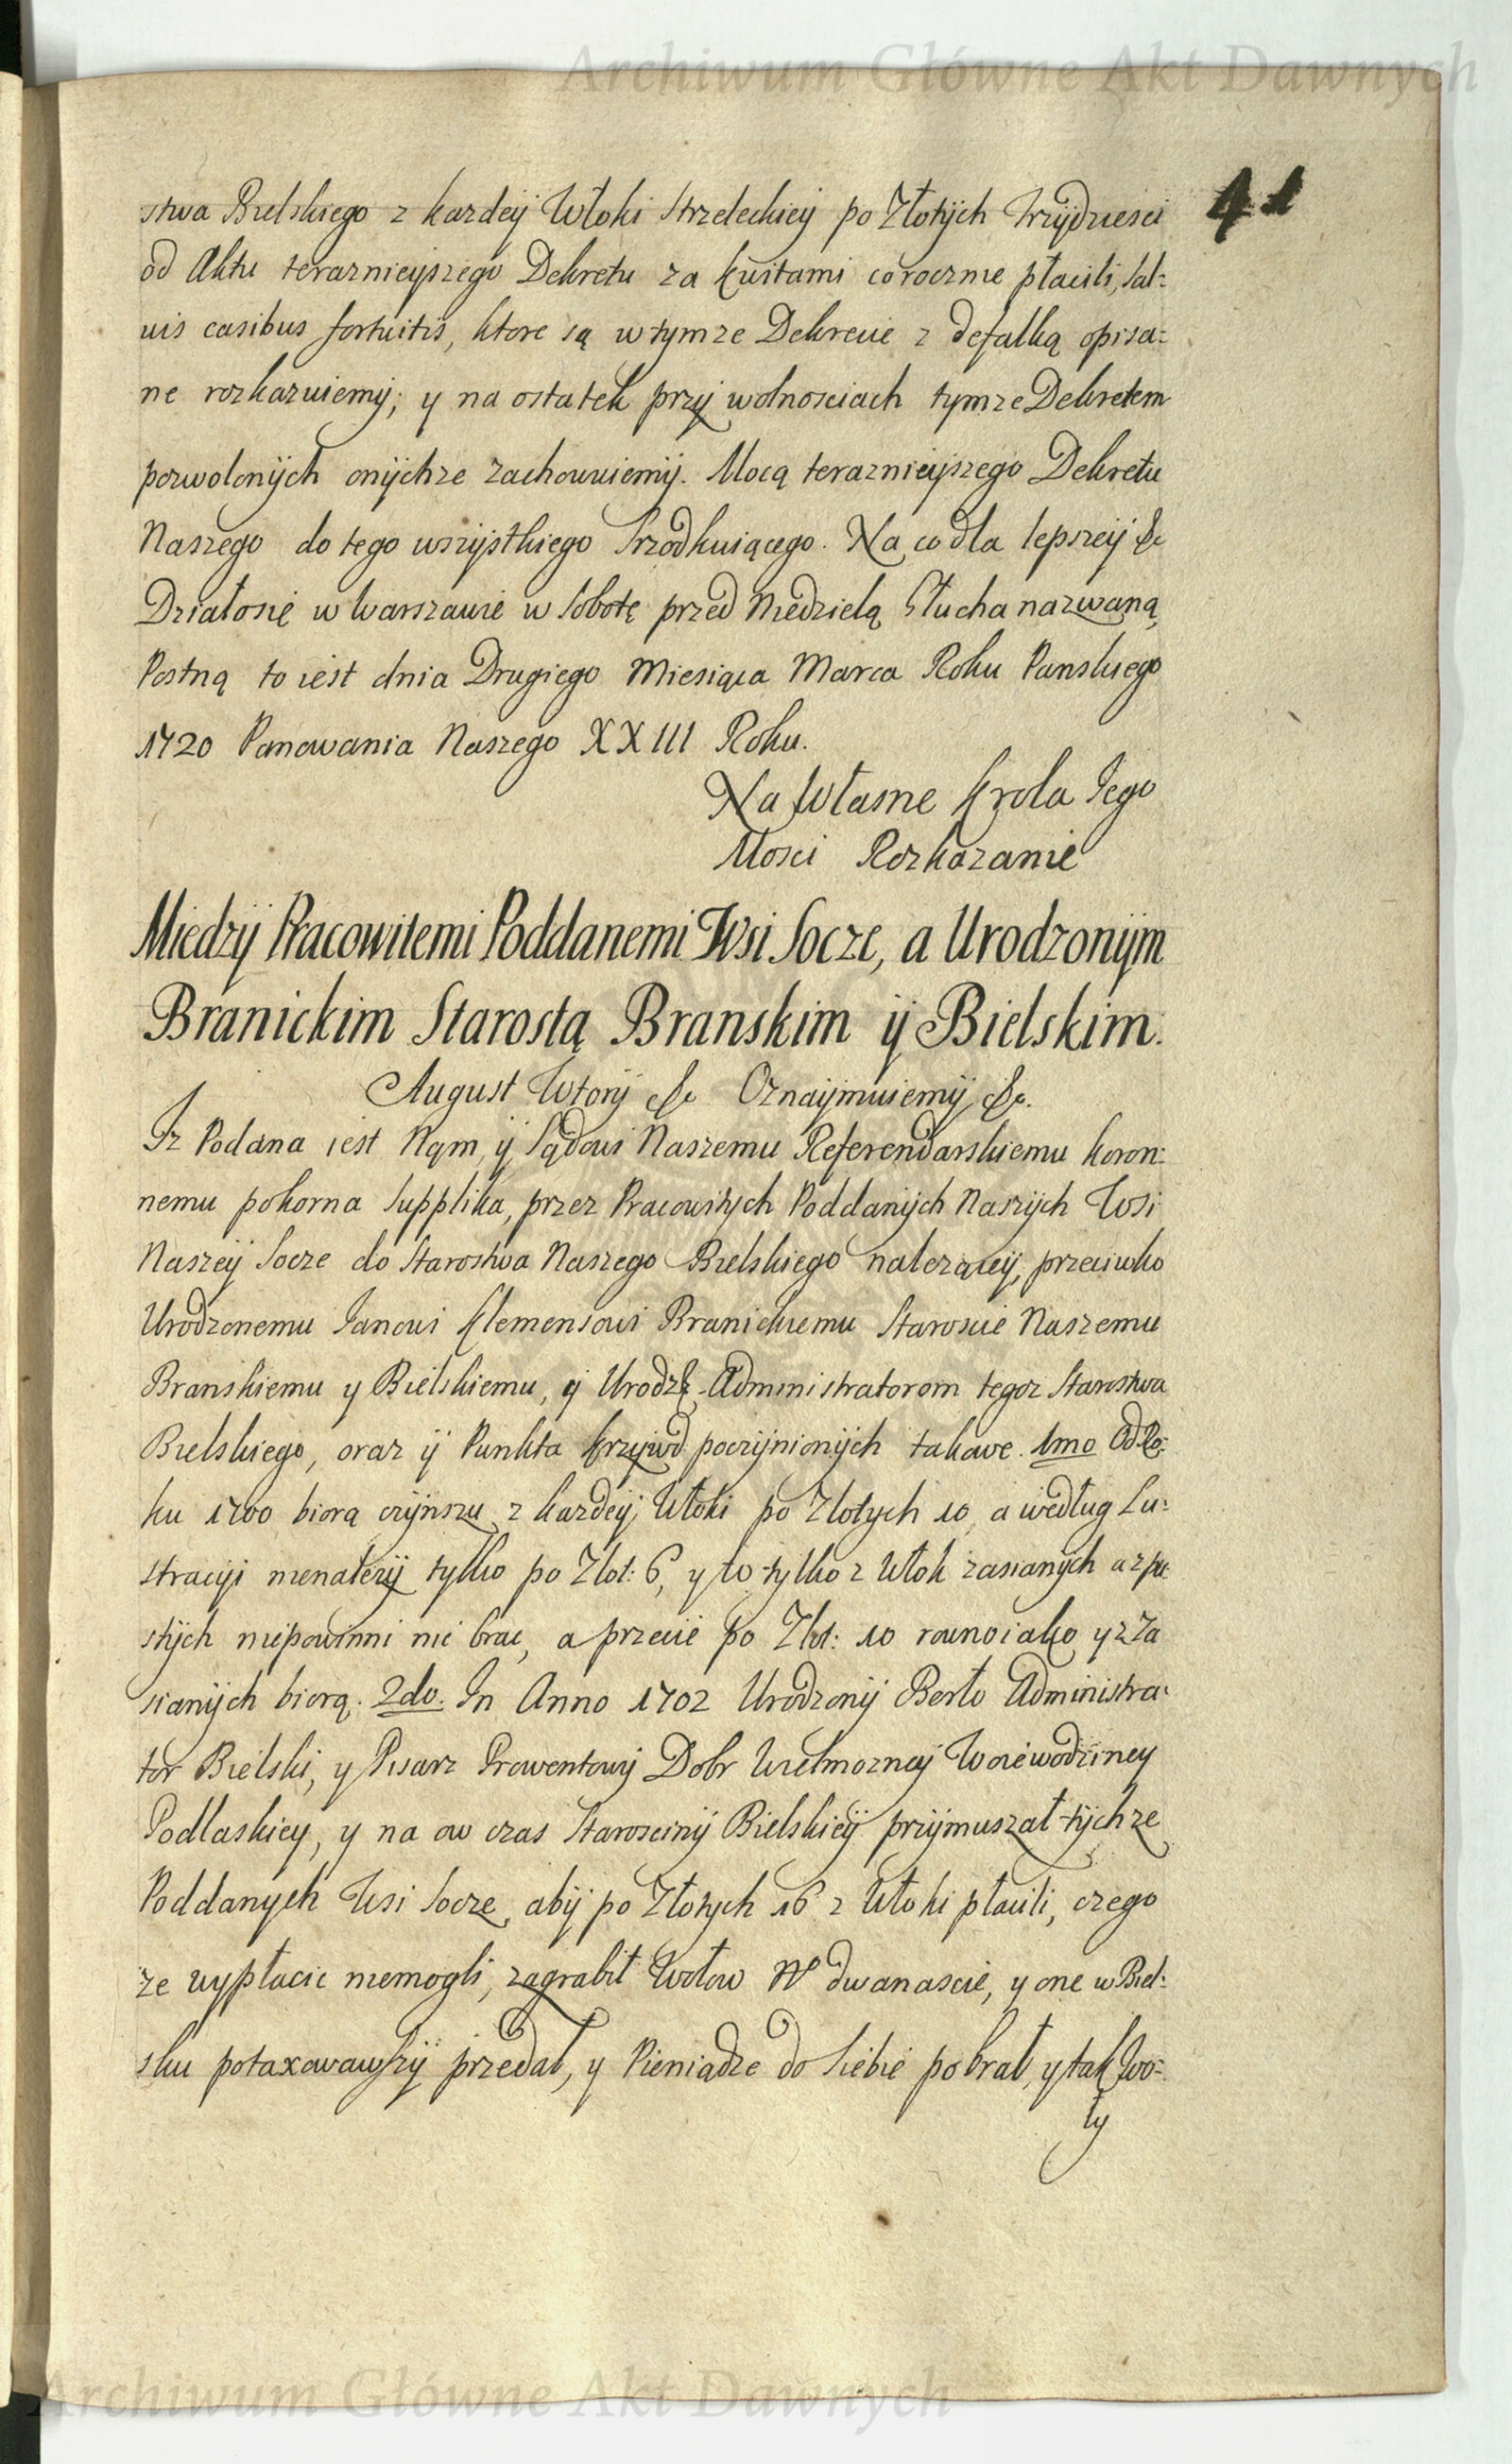 Archiwum Główne Akt Dawnych
41
stwa Bielskiego z kazdey Włoki Strzeleckiey po Złotych Trzydziesci
od Aktu teraznieyszego Dekretu za kwitami corocznie płacili, sal:
uis casibus fortuitis, ktore są w tymze Dekrecie z defalką opisa:
ne rozkazuiemy; y na ostatek przy wolnosciach tymze Dekretem
pozwolonych onychze zachowuiemy. Mocą teraznieyszego Dekretu
Naszego do tego wszystkiego Srzodkuiącego. Na co dla lepszey &c
Działosię w Warszawie w Sobotę przed Niedzielą Głucha nazwaną
Postną to iest dnia Drugiego Miesiąca Marca Roku Panskiego
1720 Panowania Naszego XXIII Roku.
Na Własne Krola Jego
Mosci Rozkazanie
Miedzy Pracowitemi Poddanemi Wsi Socze, a Urodzonym
Branickim Starostą Branskim y Bielskim.
August Wtory &c Oznaymuiemy &c.
Iz Podana iest Nąm, y Sądowi Naszemu Referendarskiemu koron:
nemu pokorna Supplika, przez Pracowitych Poddanych Naszych Wsi
Naszey Socze do Starostwa Naszego Bielskiego nalezącey, przeciwko
Urodzonemu Janowi Klemensowi Branickiemu Staroscie Naszemu
Branskiemu y Bielskiemu, y Urodz: Administratorom tegoz Starostwa
Bielskiego, oraz y Punkta krzywd poczynionych takowe. 1mo Od Ro:
ku 1700 biorą czynszu z kazdey Włoki po Zlotych 10, a według Lu:
stracyi nienalezy tylko po Zlot: 6, y to tylko z Włok zasianych a z pu
stych niepowinni nic brac, a przecie po Zlot: 10 rownoiako y z Za
sianych biorą. 2do. In Anno 1702 Urodzony Berło Administra:
tor Bielski, y Pisarz Prowentowy Dobr Wielmozney Woiewodziney
Podlaskiey, y na ow czas Starosciny Bielskiey przymuszał tychze
Poddanych Wsi Socze, aby po Złotych 16 z Włoki płacili, czego
ze wypłacic niemogli, zagrabił Wołow No dwanascie, y one w Biel:
sku potaxowawszy przedał, y Pieniądze do Siebie pobrał, y tak Wo:
ły
Archiwum Główne Akt Dawnych